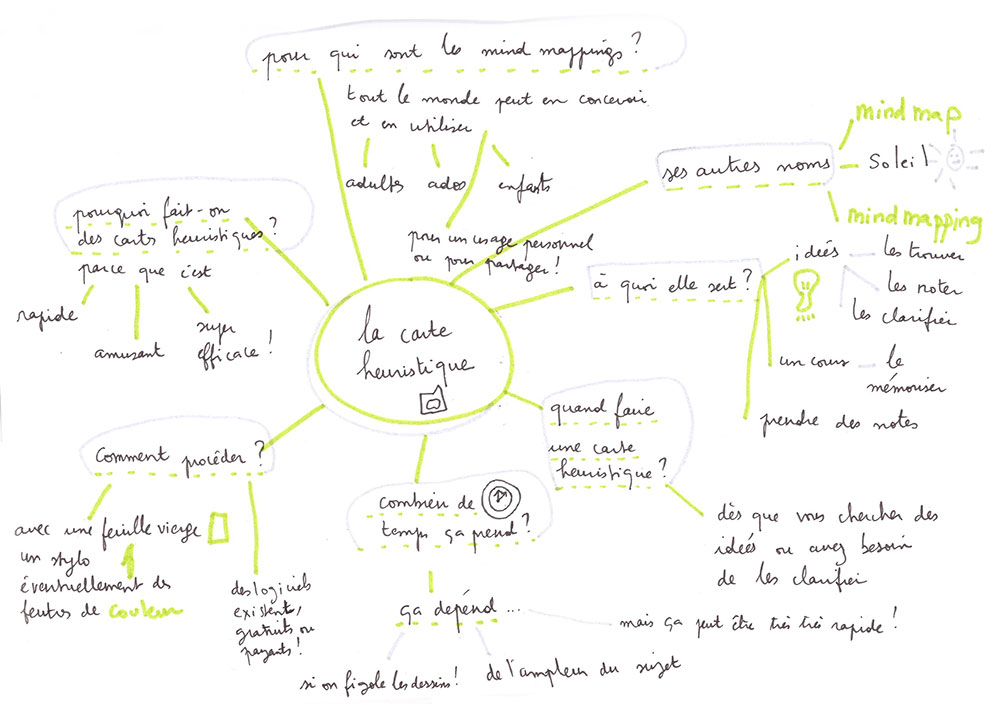 pour qui sont les mind mappings ?
tout le monde peut en concevoir
et en utiliser
adultes
ados
enfants
pour un usage personnel
ou pour partager !
ses autres noms
mind map
Soleil
mind mapping
pourquoi fait-on
des cartes heuristiques ?
parce que c'est
rapide
amusant
super
efficace !
la carte
heuristique
à quoi elle sert ?
idées
les trouver
les noter
les clarifier
un cours
le
mémoriser
prendre des notes
quand faire
une carte
heuristique ?
dès que vous chercher des
idées ou avez besoin
de les clarifier
Comment procéder ?
avec une feuille vierge
un stylo
éventuellement des
feutres de couleur
des logiciels
existent,
gratuits ou
payants !
combien de
temps ça prend ?
ça dépend ...
mais ça peut être très très rapide !
si on fignole les dessins !
de l'ampleur du sujet